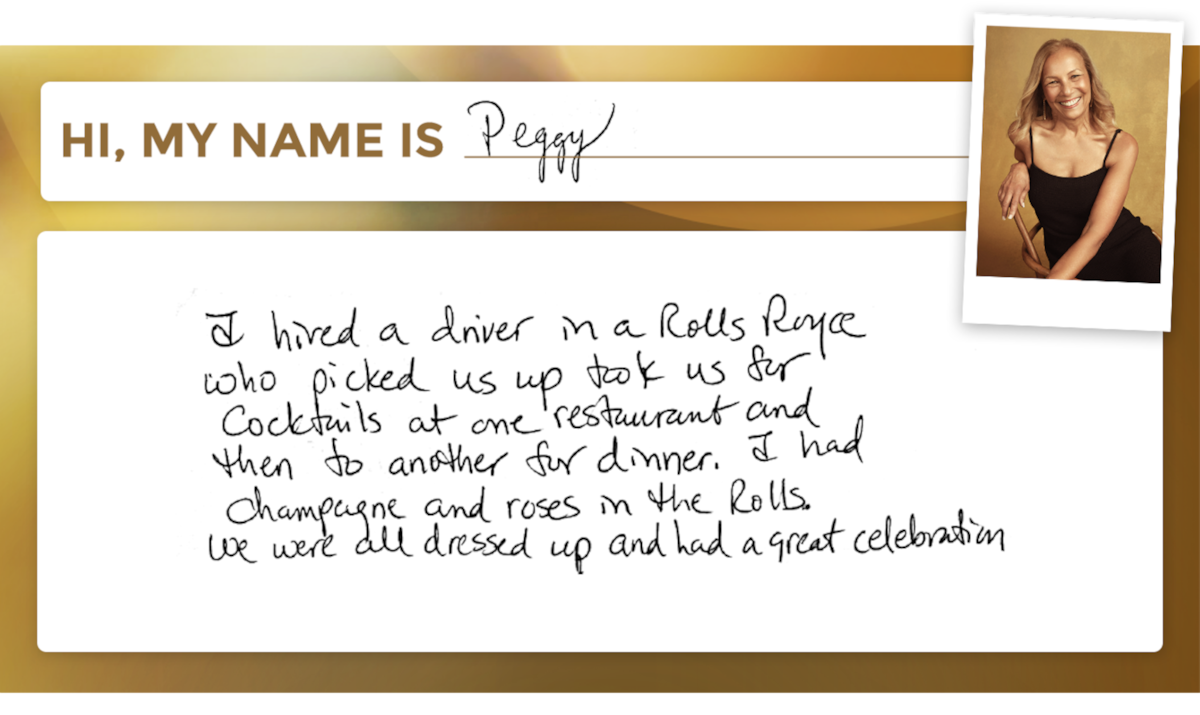 HI, MY NAME IS Peggy
I hired a driver in a Rolls Royce
who picked us up took us for
Cocktails at one restaurant and
then to another for dinner. I had
champagne and roses in the Rolls.
We were all dressed up and had a great celebration